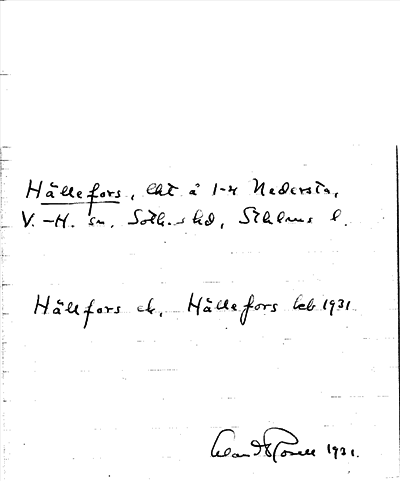 Hällefors, lht å 1-4 Nedersta,
V.-H. sn. Soth.s hd, Sthlms l.
Hällfors ek, Hällefors leb 1931
1931.